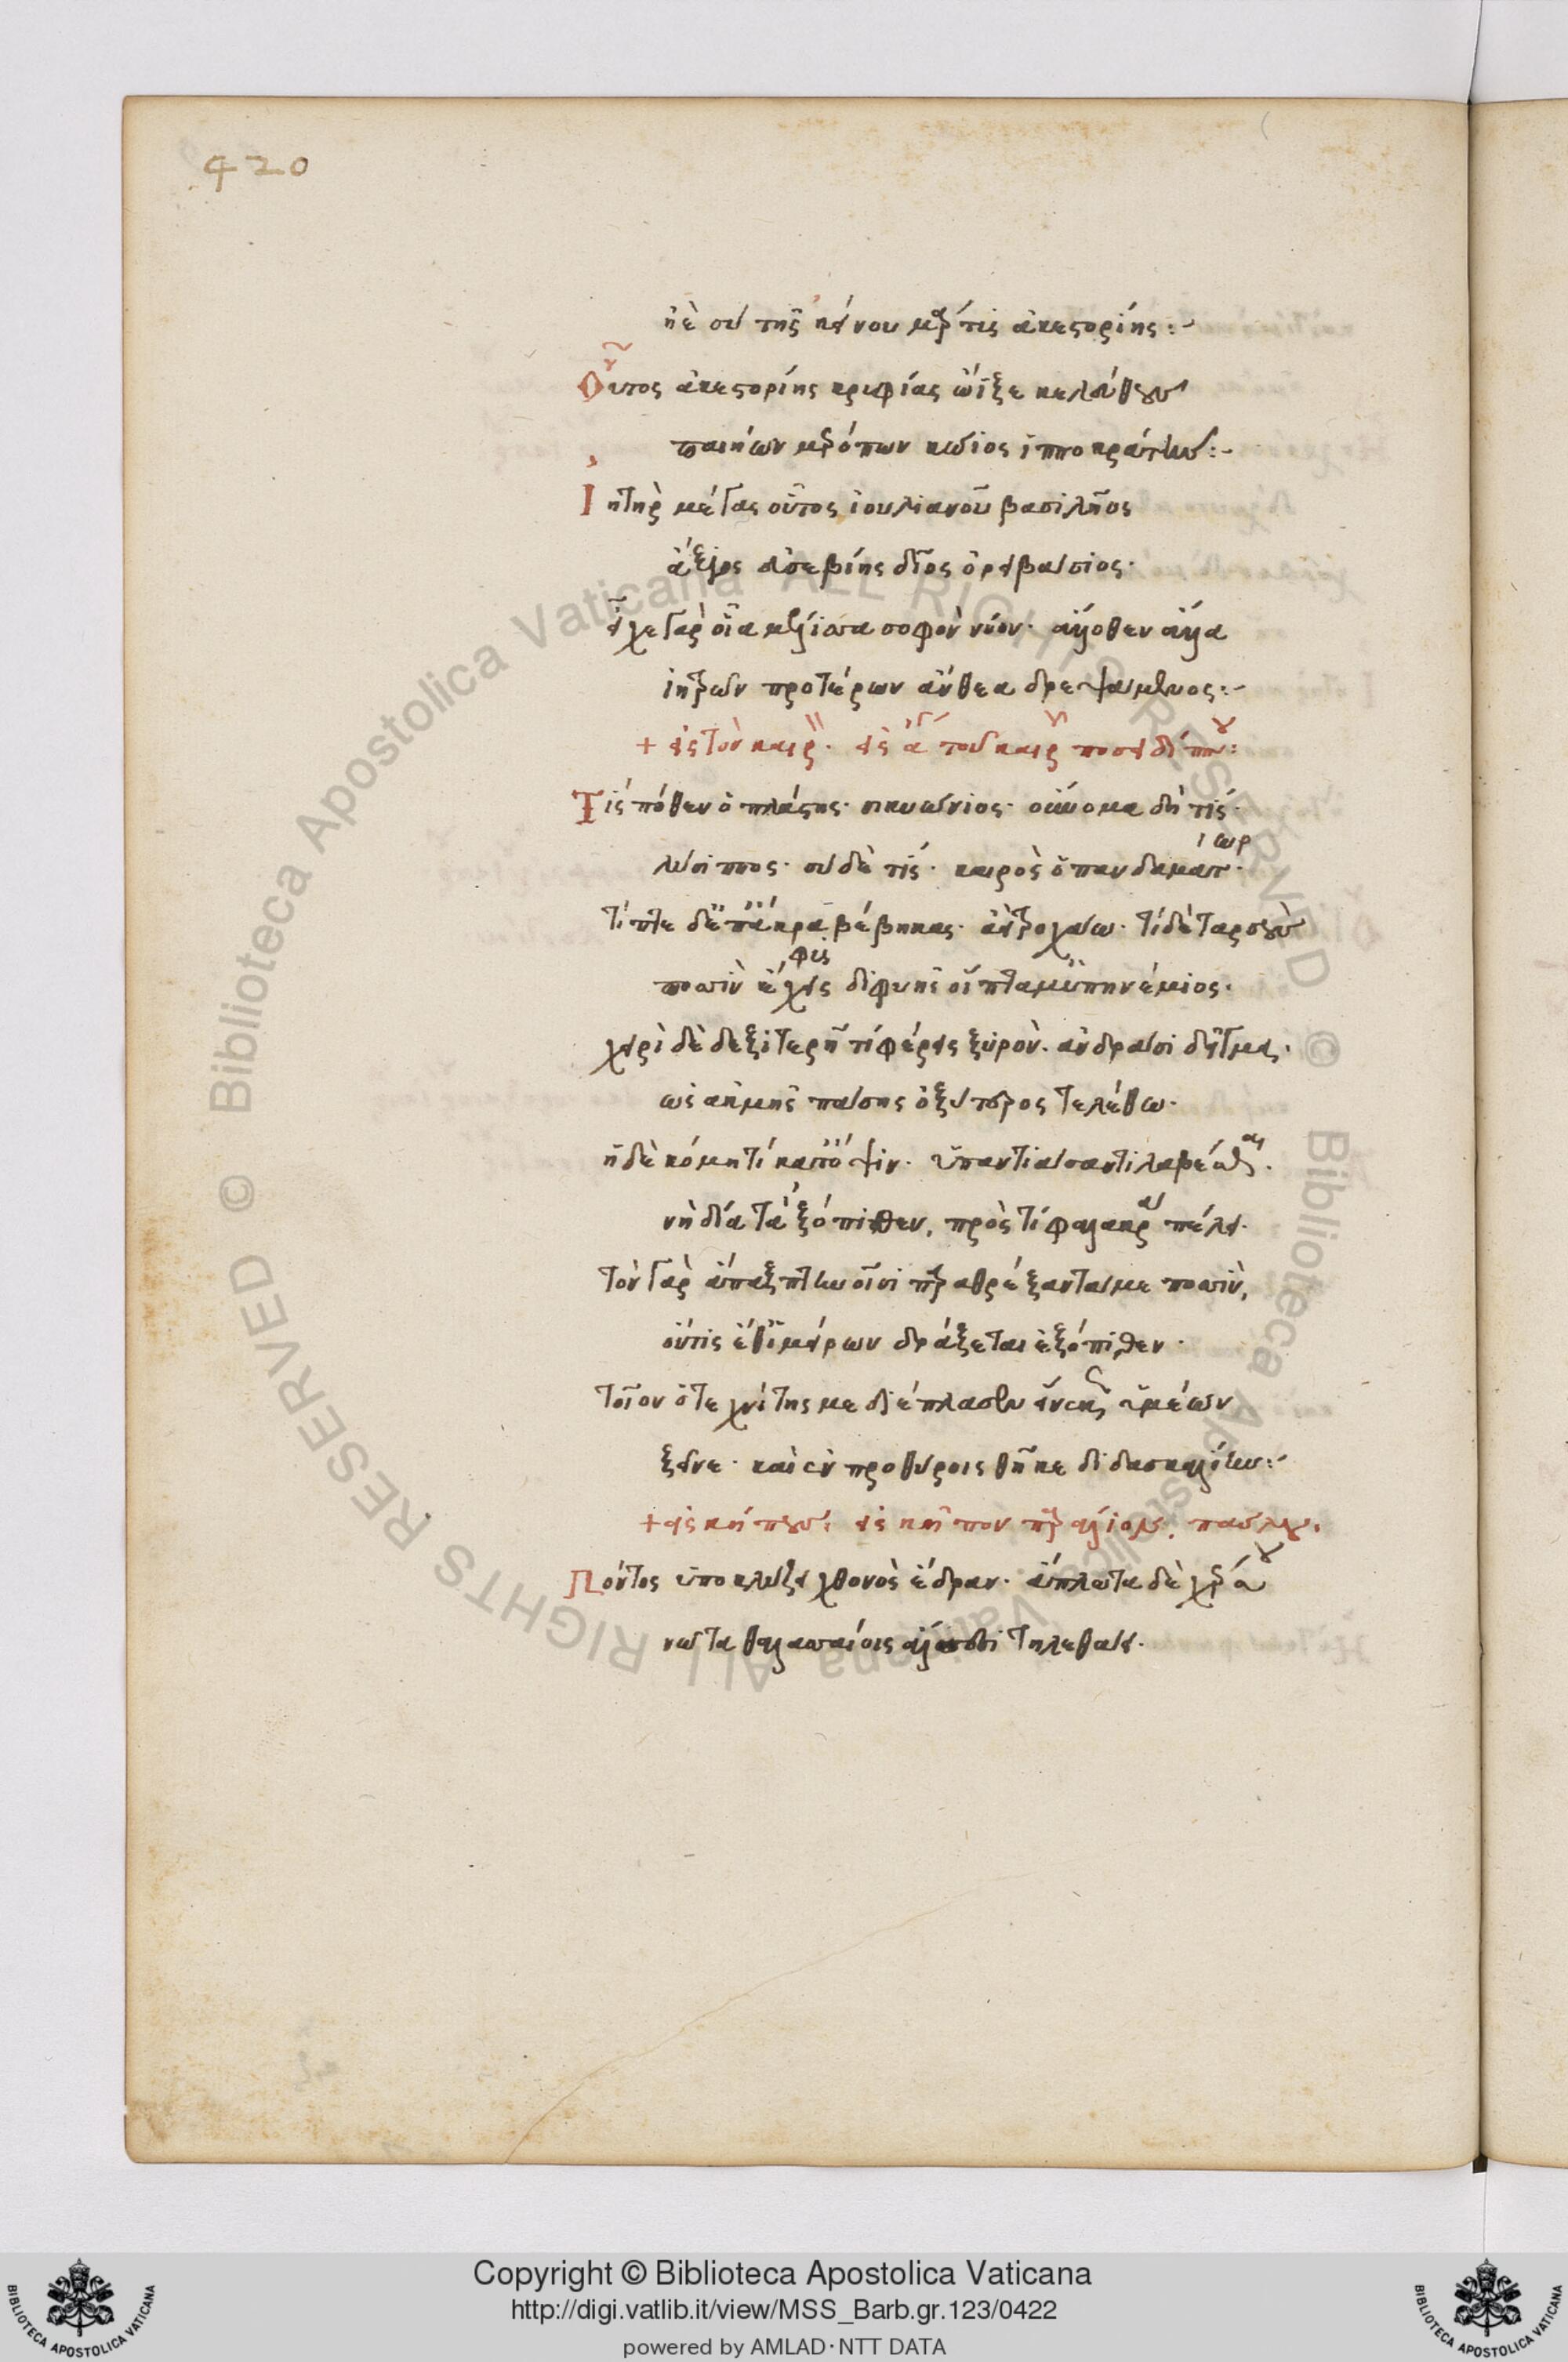 420
ἠὲ σὺ τῆς κείνου μήτις ἀκεστορίης:-
Οὗτος ἀκεστορίης κρυφίας ὤϊξε κελεύθους
παιήων μερόπων κώϊος ἱπποκράτης:-
Ἰητὴρ μέγας οὗτος ἰουλιανοῦ βασιλῆος
ἄξιος εὐσεβίης δῖος ὀρειβάσιος·
εἶχε γὰρ οἷα μέλισσα σοφὸν νόον· ἄλλοθεν ἄλλα
ἰητρῶν προτέρων ἄνθεα δρεψάμενος:-
+ εἰς τὸν καιρὸν· εἰς ἄγαλμα τοῦ καιροῦ ποσειδίππου:
Τίς πόθεν ὁ πλάστης· σικυώνιος· οὔνομα δὴ τίς·
λύσιππος· σὺ δὲ τίς· καιρὸς ὁ πανδαμάτωρ·
τίπτε δ' ἐπ' ἄκρα βέβηκας· ἀεὶ τροχάω· τί δὲ ταρσοὺς
ποσσὶν ἔχεις διφυεῖς ἵπταμ' ὑπηνέμιος·
χειρὶ δὲ δεξιτερῇ τί φέρεις ξυρόν· ἀνδράσι δεῖγμα,
ὡς ἀκμῆς πάσης ὀξύτερος τελέθω·
ἡ δὲ κόμη τί κατ' ὄψιν· ὑπαντιάσαντι λαβέσθαι·
νὴ δία τἀξόπιθεν, πρὸς τί φαλακρὰ πέλει·
τὸν γὰρ ἅπαξ πτηνοῖσι παραθρέξαντά με ποσσὶν,
οὔτις ἔθ' ἱμείρων δράξεται ἐξόπιθεν·
τοῖον ὁ τεχνίτης με διέπλασεν εἵνεκεν ὑμέων
ξεῖνε· καὶ ἐν προθύροις θῆκε διδασκαλίην:-
+ εἰς κήπους: εἰς κῆπον παράλιον, παύλου.
Πόντος ὑποκλύζει χθονὸς ἕδραν· ἄπλωτα δὲ χέρσου
νῶτα θαλασσαίοις ἄλσεσι τηλεθάει·
Copyright © Biblioteca Apostolica Vaticana
http://digi.vatlib.it/view/MSS_Barb.gr.123/0422
powered by AMLAD·NTT DATA